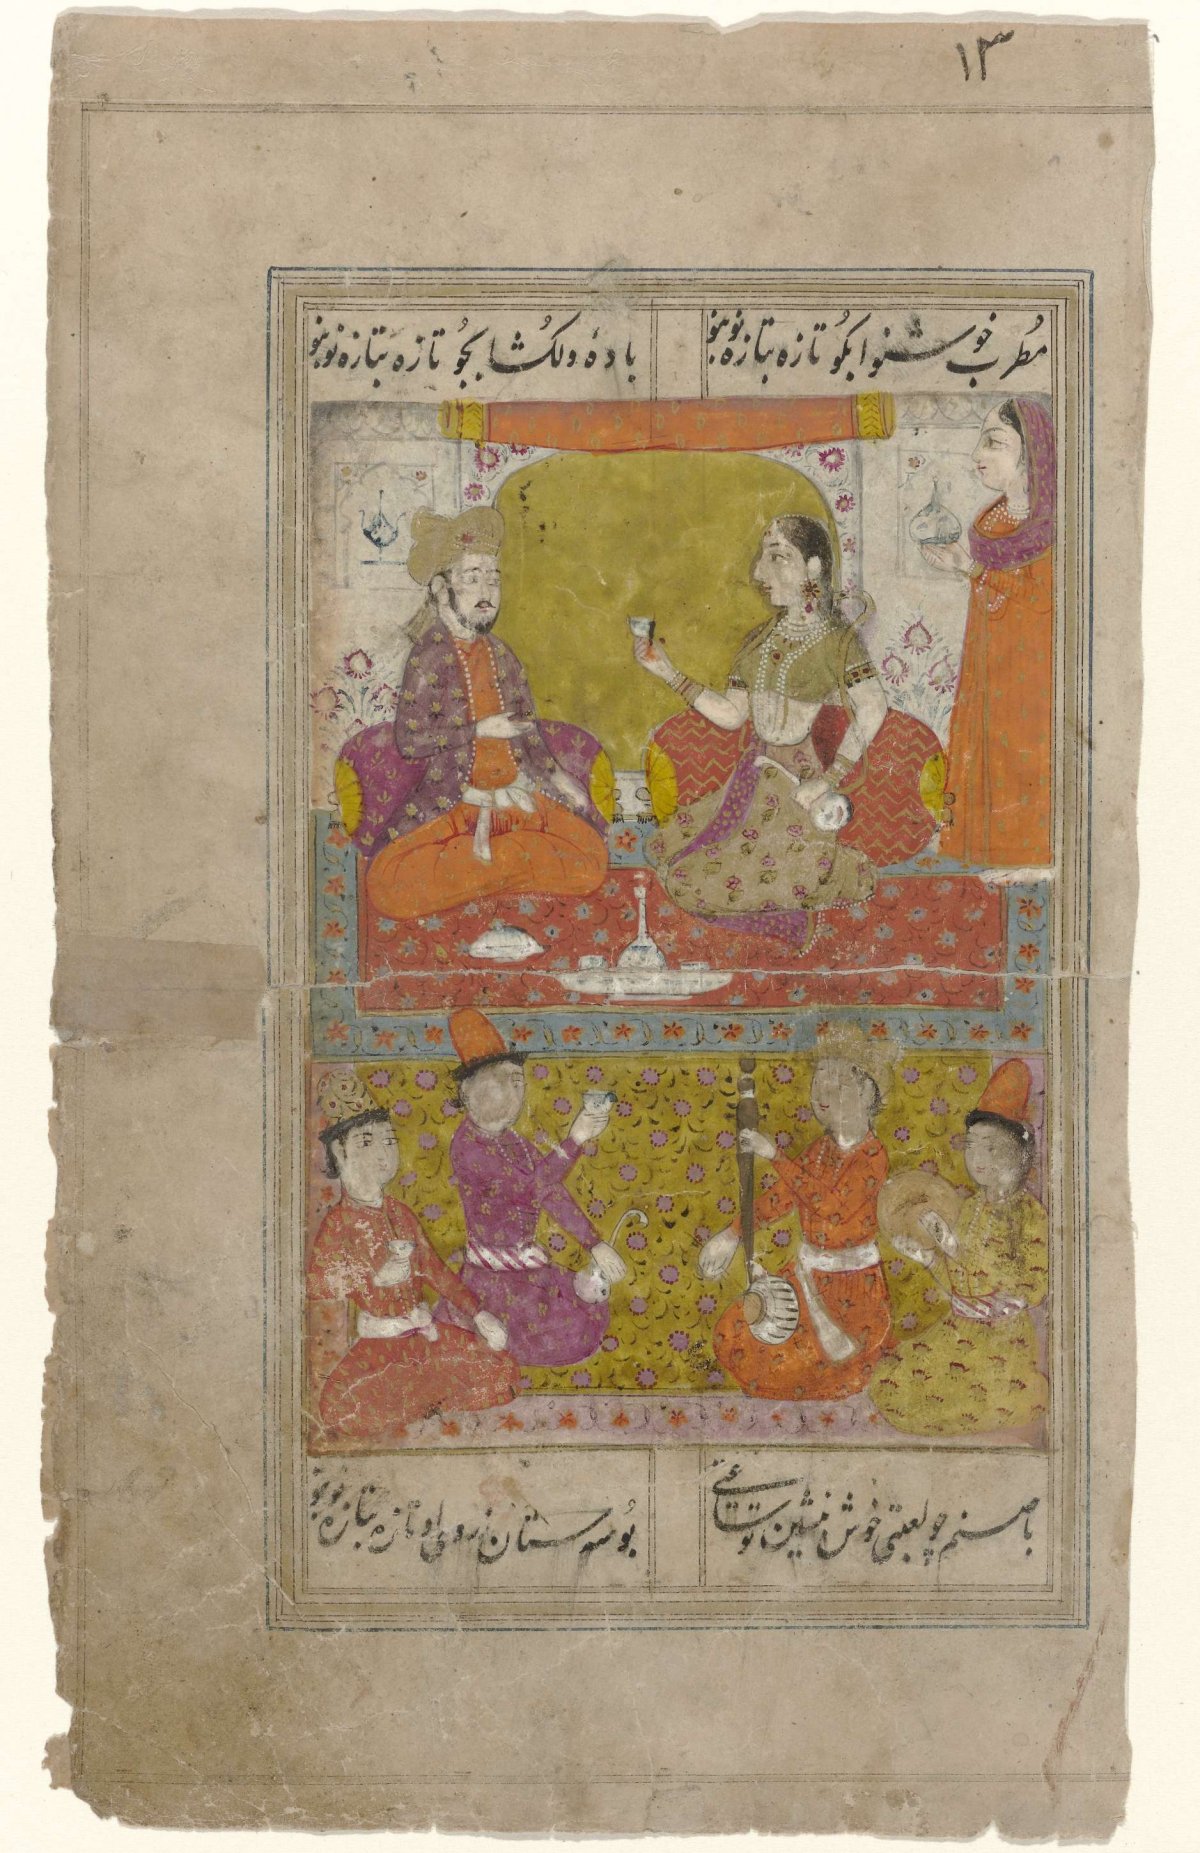 ۱۳
مطرب خوشنوا بگو تازه بتازه نو بنو
باده دلکشا بجو تازه بتازه نو بنو
با صنمی چو لعبتی خوش بنشین
بوسه ستان ز روی او تازه بتازه نو بنو